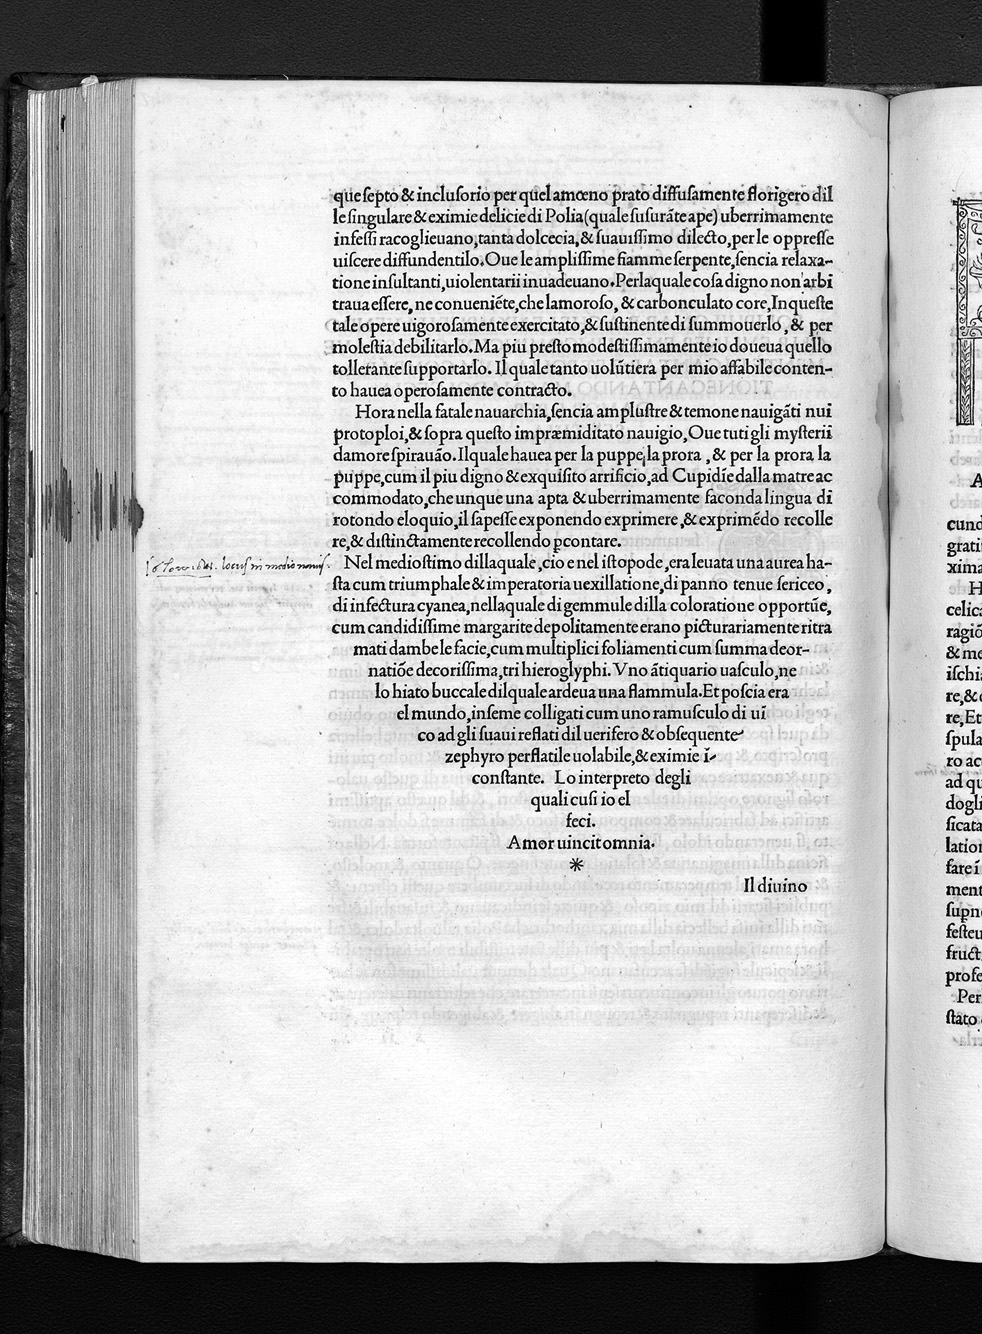 que ſepto & incluſorio per quel amœno prato diffuſamente florigero dil
le ſingulare & eximie delicie di Polia (quale ſuſurãte ape) uberrimamente
infeſſi racoglieuano, tanta dolcecia, & ſuauiſſimo dilecto, per le oppreſſe
uiſcere diffundentilo. Oue le ampliſſime fiamme ſerpente, ſencia relaxa-
tione inſultanti, uiolentarii inuadeuano. Perlaquale coſa digno non arbi
traua eſſere, ne conueniẽte, che lamoroſo, & carbonculato core, In queſte
tale opere uigoroſamente exercitato, & ſuſtinente di ſummouerlo, & per
moleſtia debilitarlo. Ma piu preſto modeſtiſſimamente io doueua quello
tollerante ſupportarlo. Il quale tanto uolũtiera per mio affabile conten-
to hauea operoſamente contracto.
Hora nella fatale nauarchia, ſencia ampluſtre & temone nauigãti nui
protoploi, & ſopra queſto impræmiditato nauigio, Oue tuti gli myſterii
damore ſpirauão. Il quale hauea per la puppe, la prora, & per la prora la
puppe, cum il piu digno & exquiſito arrificio, ad Cupidĩe dalla matre ac
commodato, che unque una apta & uberrimamente faconda lingua di
rotondo eloquio, il ſapeſſe exponendo exprimere, & exprimẽdo recolle
re, & diſtinctamente recollendo ꝑcontare.
Nel medioſtimo dillaquale, cio e nel iſtopode, era leuata una aurea ha-
ſta cum triumphale & imperatoria uexillatione, di panno tenue ſericeo,
di infectura cyanea, nellaquale di gemmule dilla coloratione opportũe,
cum candidiſſime margarite depolitamente erano picturariamente ritra
mati dambe le facie, cum multiplici foliamenti cum ſumma deor-
natiõe decoriſſima, tri hieroglyphi. Vno ãtiquario uaſculo, ne
lo hiato buccale dilquale ardeua una flammula. Et poſcia era
el mundo, inſeme colligati cum uno ramuſculo di ui
co ad gli ſuaui reflati dil ueriſero & obſequente
zephyro perflatile uolabile, & eximie ĩ-
conſtante. Lo interpreto degli
quali cuſi io el
feci.
Amor uincit omnia.
*
Il diuino
locus in medio nauis.
A
cund
grati
xima
H
celica
ragiõ
& me
iſchia
re, &
re, Et
ſpula
ro ac
ad qu
dogli
ſicata
lation
fare ĩ
ment
ſupn
feſteu
fruct
profe
Per
ſtato